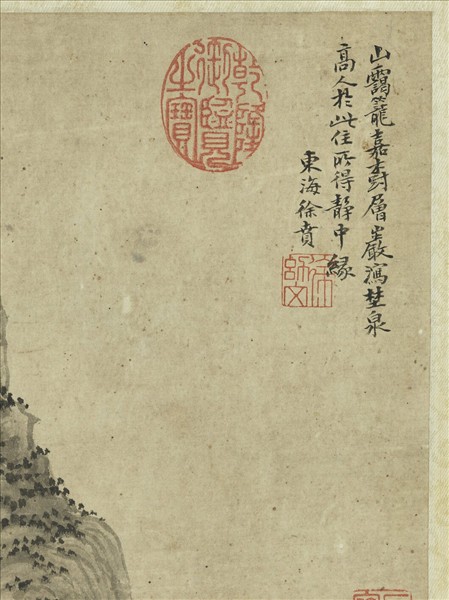 山靄籠嘉樹層巖瀉埜泉
髙人於此住所得靜中緣
東海徐賁
乾隆
御覽
之寶